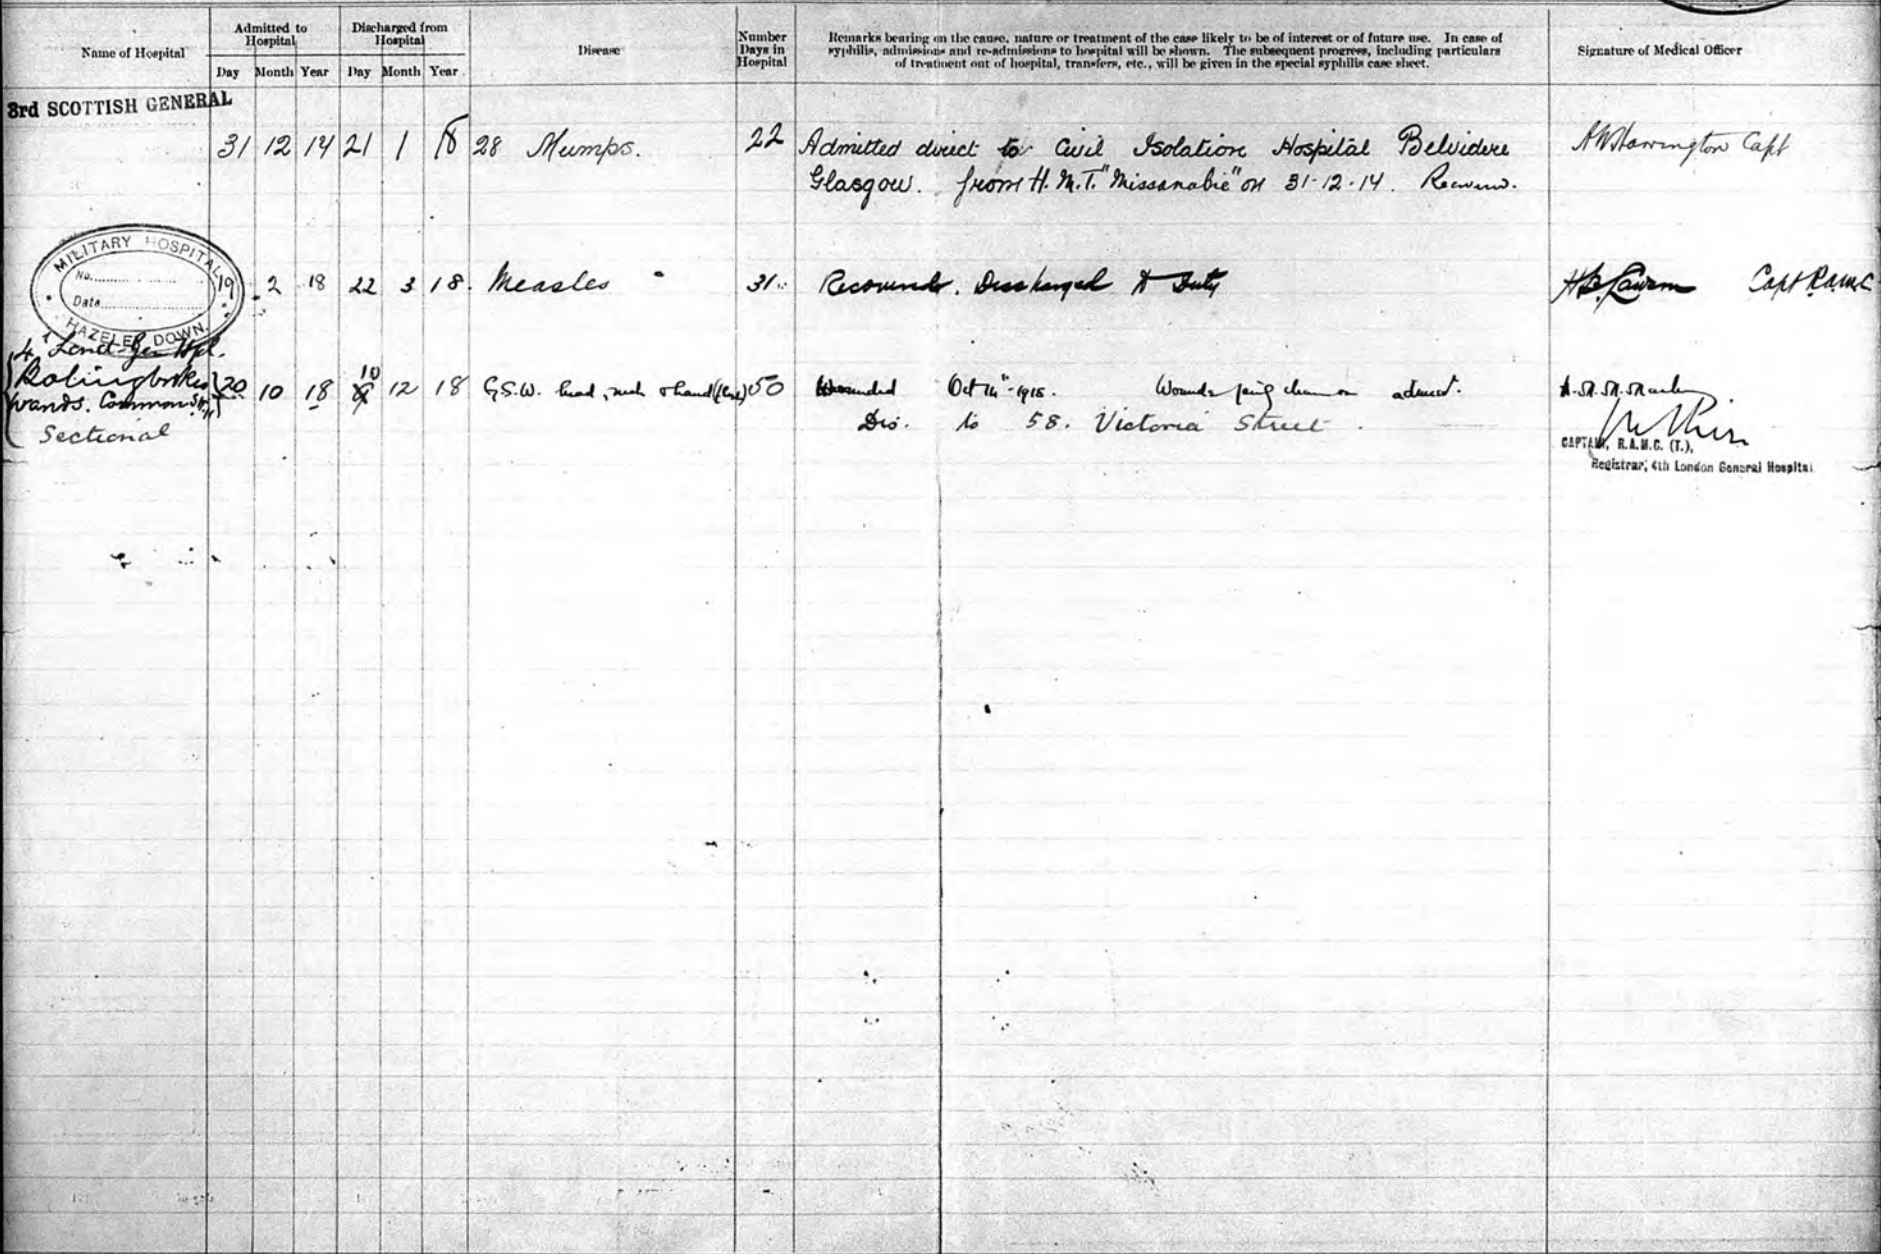 Name of Hospital
Admitted to Hospital
Discharged from Hospital
Disease
Number Days in Hospital
Remarks bearing on the cause, nature or treatment of the case likely to be of interest or of future use. In case of
syphilis, admissions and re-admissions to hospital will be shown. The subsequent progress, including particulars
of treatment out of hospital, transfers, etc., will be given in the special syphilis case sheet.
Signature of Medical Officer
Day Month Year Day Month Year
3rd SCOTTISH GENERAL
31 12 14 21 1 18 28 Mumps. 22 Admitted direct to Civil Isolation Hospital Belvidere Capt
Glasgow. from H.M.T. "Missanabie" on 31-12-14.
MILITARY HOSPITAL
No.
Date
HAZELEY DOWN.
19 2 18 22 3 18. Measles 31 Recovered. Discharged to Duty Capt R.A.M.C.
4 Lond Gen Hpl.
Bolingbroke
Wands. Common
Sectional
20 10 18 10 12 18 G.S.W. head, neck & hand 50 Wounded Oct 14th 1918. Wounds clean on admist.
Dis. to 58. Victoria Street.
CAPTAIN, R.A.M.C. (T.),
Registrar, 4th London General Hospital